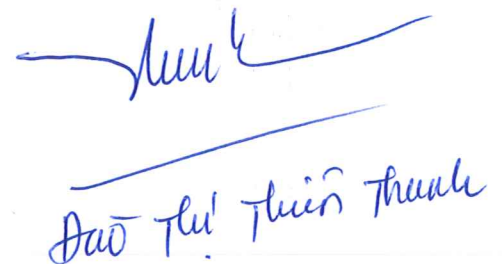 Đào Thị Thiên Thanh